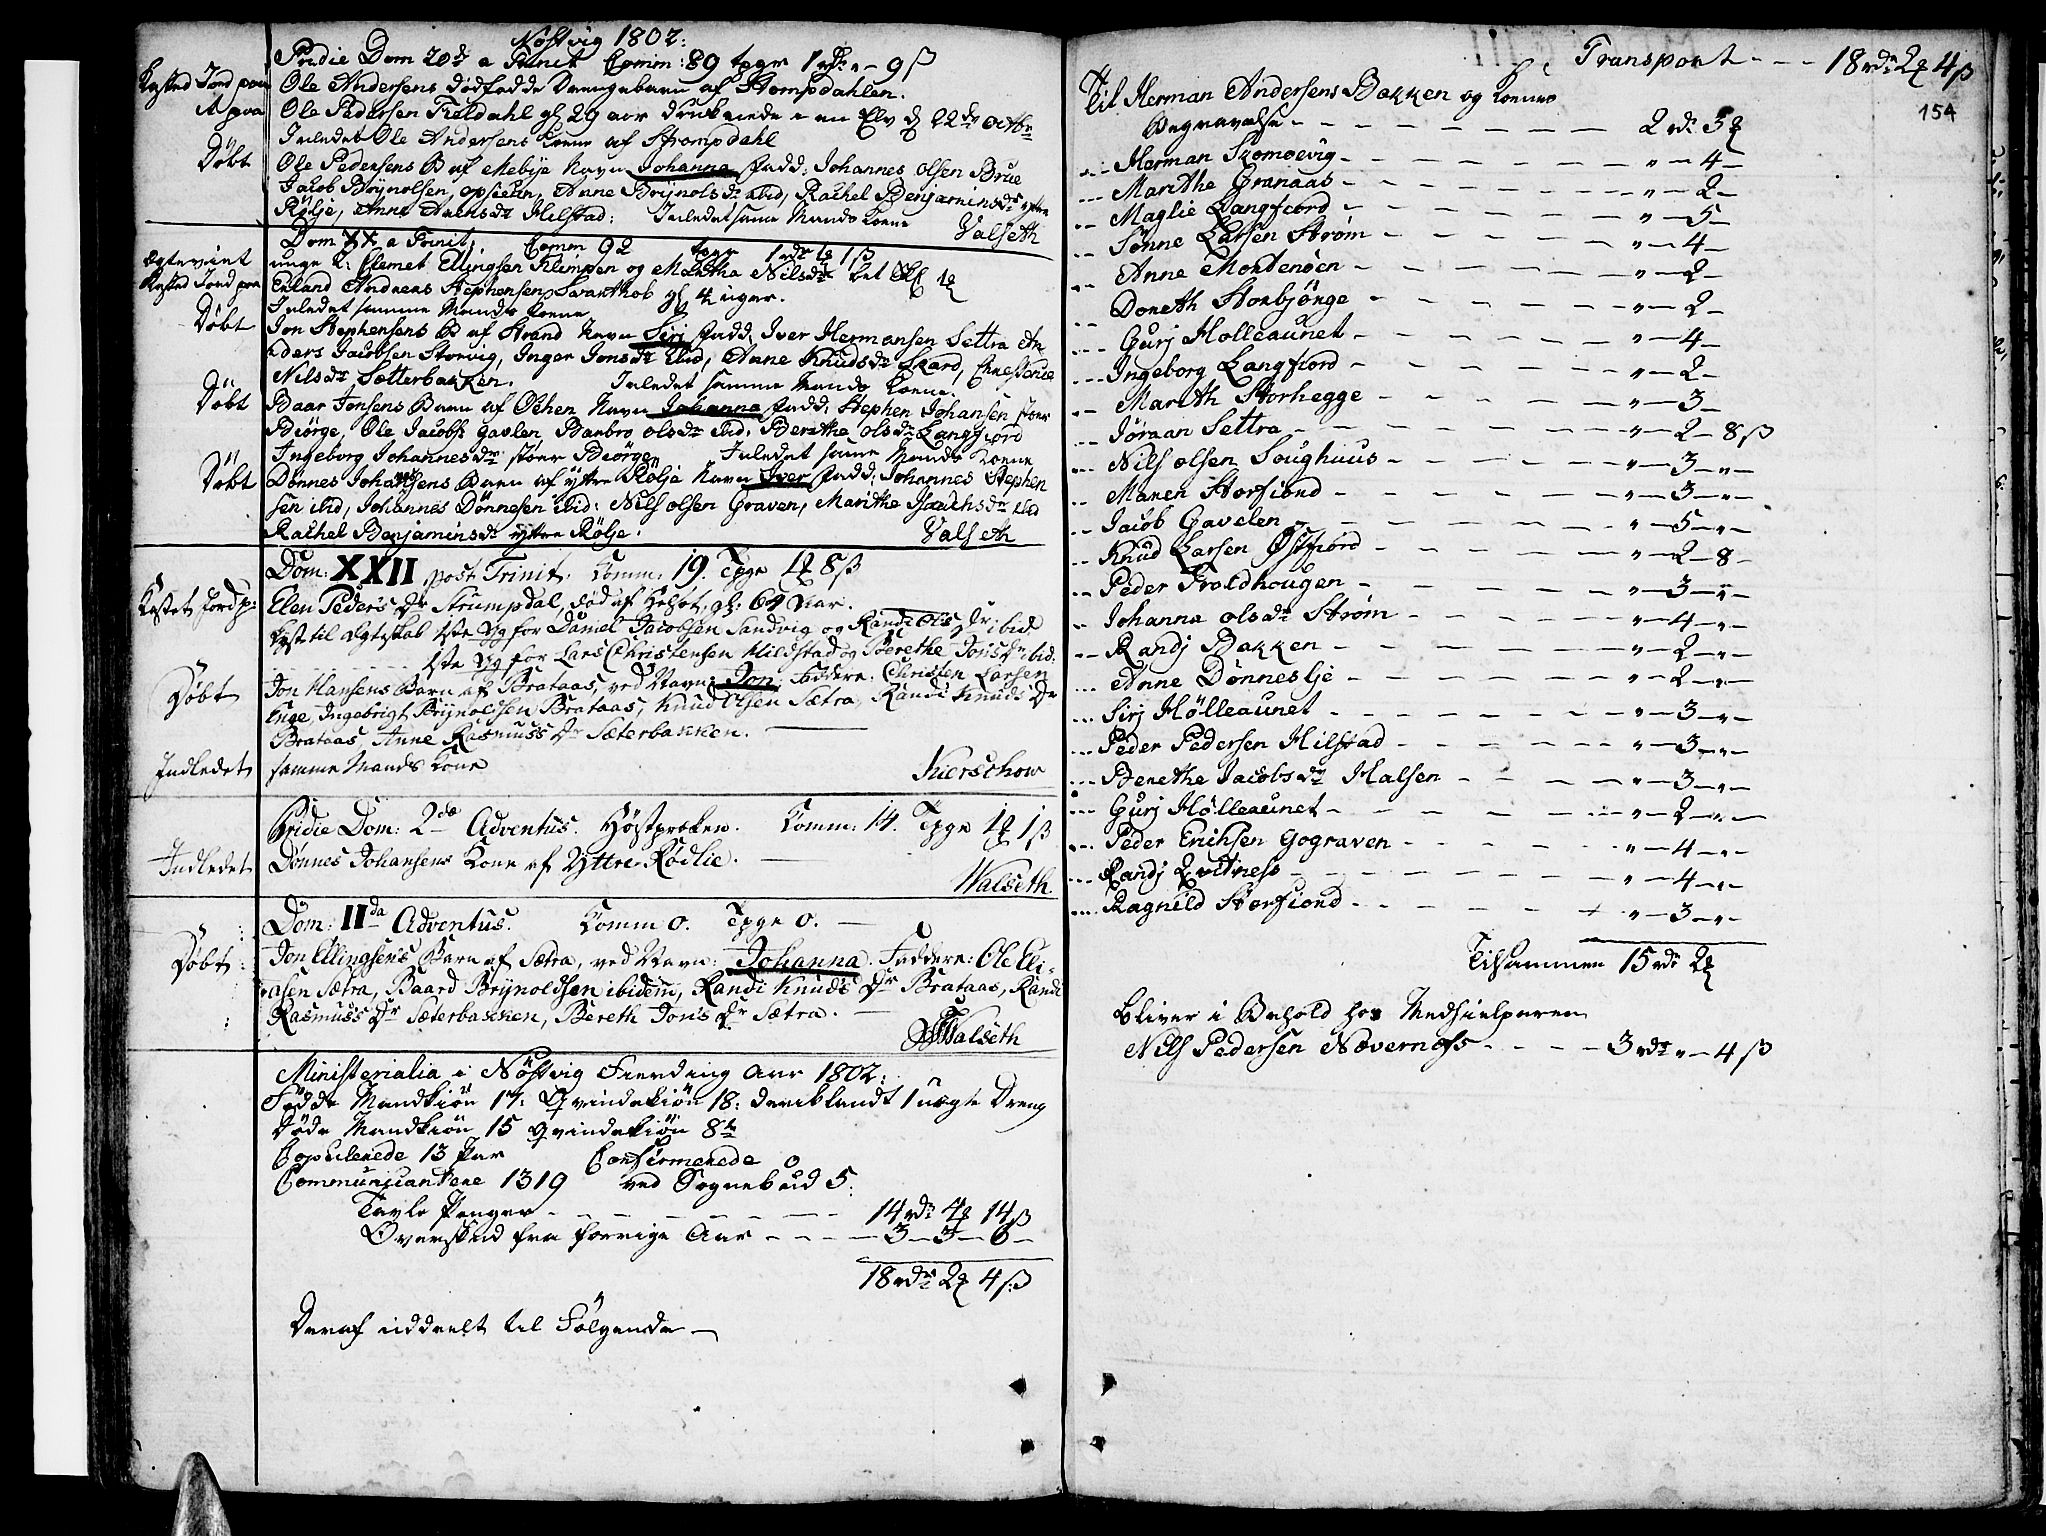 Nöstvig 1802:
Pridie Dom 20de a Trinit Comm: 89 tpge 1 rdr " 9 ß
Kasted Jord paa Ole Andersens dødfødde Drengebarn af Strompdahlen.
Ole Pedersen Fieldahl gl 29 aar druknede i en Elv d 22de octbr
Inledet Ole Andersens Kone af Strompdahl
Døbt Ole Pedersens B af Mebye Navn Johanna Fadd: Johannes olsen Brue
Jacob Brynolsen, opsielen, Anne Brynols dr ibid, Rachel Benjamins dr ytre
Rølje, Anne dr Hilstad: Inledet same Mands Kone
Valseth
Dom XX a Trinit. Comm 92 tpge 1 rdr 1 1 ß
Ægteviet unge K: Clemet Ellingsen Klimpen og Nils dr
Kasted Jord paa Erland Andreas Stephensen Svarthob gl 4 uger.
Inledet samme Mands Kone
Døbt Jon Stephensens B af Strand Navn Siri Fadd. Iver Hermansen Settra An
ders Jacobsen Storvig, Inger Jons dr ibid, Anne Knuds dr Skard,
Nils dr Sætterbakken. Inledet samme Mands Koene.
Døbt Baar Jonsens Barn af Øthen Navn Johanna Fadd: Stephen Johansen stoer
Biørge, Ole Jacobs Gavlen, Barbro ols dr ibid. Berethe ols dr Langfiord
Ingeborg Johannes dr stoer Biørge Inledet same Mands Koene
Døbt Dønnes Johansens Barn af ytre Rölje Navn Iver Fadd: Johannes Stephen
sen ibid, Johannes Dönnesen ibid: Nils olsen Graven, Marithe Isachs dr ibid
Rachel Benjamins dr ytre Rølje. Valseth
Dom: XXII post Trinit. Komm. 19. Tpge 1 8 ß
Kastet Jord p: Elen Peders Dr Strumpdal, død af gl: 69 Aar.
Lyst til Ægteskab 1ste Gg for Daniel Jacobsen Sandvig og Randi Ols Dr ibid
1ste Gg for Lars Christensen Hildstad og Berethe Jons Dr ibid.
Døbt Jon Hansens Barn af Brataas, ved Navn: Jon. Faddere: Christen Larsen
Enge, Ingebrigt Brynoldsen Brataas, Knud Olsen Sætra, Randi Knuds Dr
Brataas, Anne Rasmuss Dr Sæterbakken.
Indledet samme Mands Kone Kierschow
Pridie Dom: 2de Adventus. Høstprøken. Komm: 14. Tpge 1 1 ß
Indledet Dønnes Johansens Kone af Yttre-Rødlie.
Walseth.
Dom: IIda Adventus. Komm: 0. Tpge 0.
Døbt: Jon Ellingsens Barn af Sætra, ved Navn: Johanna. Faddere: Ole Eli-
asen Sætra, Baard Brynoldsen ibidem, Randi Knuds Dr Brataas, Randi
Rasmuss Dr Sæterbakken, Bereth Jons Dr Sætra.
Walseth
Ministerialia i Nöstvig Fierding Aar 1802:
Fødde Mandkiön 17: Qvindekiön 18: deriblandt 1 uægte Dreng
Døde Mandkiön 15 Qvindekiön 8te
Copulerede 13 Par Confirmerede 0
Communicantere 1319 ved Sognebud 5:
Tavle Penger - - - - - - - 14 rdr 4 14 ß
Overskud fra forrige Aar - - - - 3 - 3 - 6 -
18 rdr 2 4 ß
Deraf uddeelt til Følgende -
Transport - - - 18 rdr 2 4 ß
154
Til Herman Andersens Bakken og Koenes
Begravelse - - - - - 2 rdr 3
Herman Skomoevig - - - " - 4 -
Marithe Granaas - - - " - 2 -
Maglie Langfiord - - - " - 5 -
Sønne Larsen Strøm - - - " - 4 -
Anne Mortenöen - - - " - 2 -
Doreth Storbjönge - - - " - 2 -
Gurj Holleaunet - - - " - 4 -
Ingeborg Langfiord - - - " - 2 -
Marith Storhegge - - - " - 3 -
Jøraan Settra - - - " - 2 - 8 ß
Nils olsen Soughuus - - - " - 3 - " -
Maren Storfiord - - - " - 3 - " -
Jacob Gavelen - - - " - 5 - " -
Knud Larsen Østfiord - - - " - 2 - 8 -
Peder Troldhougen - - - " - 3 - " -
Johanna ols dr Strøm - - - " - 4 - " -
Randj Bakken - - - " - 2 - " -
Anne Dønneslje - - - " - 2 - " -
Sirj Hölleaunet - - - " - 3 - " -
Peder Pedersen Hilstad - - - " - 3 - " -
Berethe Jacobs dr Halsen - - - " - 3 - " -
Gurj Hölleaunet - - - " - 2 - " -
Peder Erichsen Gograven - - - " - 4 - " -
Randj Qvitness - - - " - 4 - " -
Ragnild Storfiord - - - " - 3 - " -
Tilsammen 15 rdr 2
Bliver i Behold hos Medhielperen
Nils Pedersen Nævernæss - - - - 3 rdr " - 4 ß